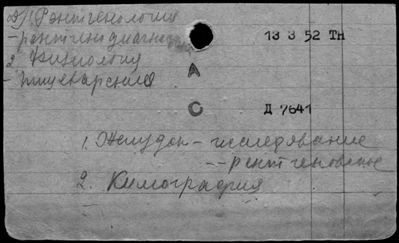 2/1 Рентгенология
- рентгенодиагностика
2. Физиология
- пищеварения
13 3 52 ТН
А
С
Д 7641
1. Желудок - исследование
-- рентгеновское
2. Кимография